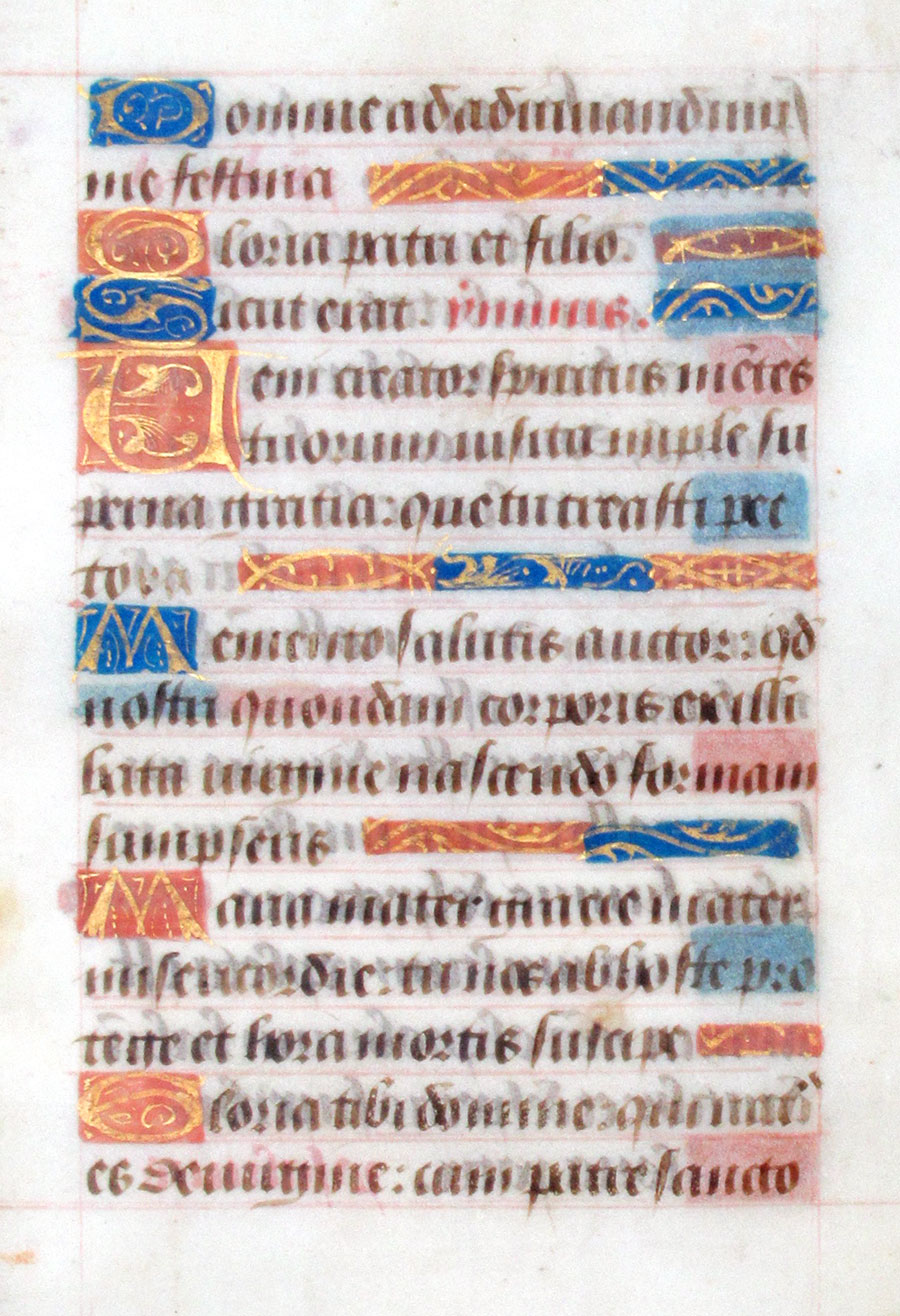 Domine ad adiuuandum
me festina
Gloria patri et filio.
Sicut erat. ymnus.
Veni creator spiritus mētes
tuorum uisita imple su
perna gratia: que tu creasti pec
tora
Memento salutis auctor: qđ
nostri quondam corporis ex illi
bata uirgine nascendo formam
sumpseris
Maria mater gratie mater
misericordie: tu nos ab hoste pro
tege et hora mortis suscipe
Gloria tibi domine: qui natus
es de uirgine: cum patre sancto